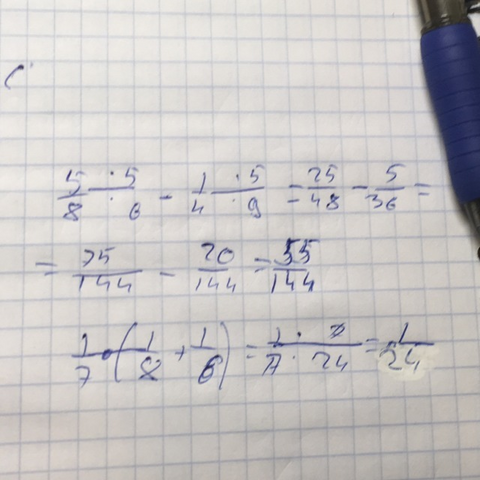 5 · 5 / 8 · 6 - 1 · 5 / 4 · 9 = 25/48 - 5/36 =
= 75/144 - 20/144 = 55/144
1/7 · (1/8 + 1/6) = 1 · 7 / 7 · 24 = 1/24